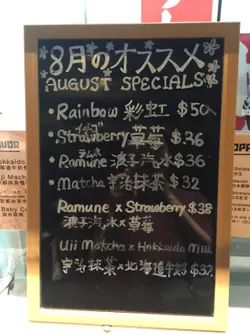 8月のオススメ
AUGUST SPECIALS
• Rainbow 彩虹 $50
• Strawberry 草莓 $36
• Ramune 波子汽水 $36
• Matcha 宇治抹茶 $32
Ramune x Strawberry $38
波子汽水 x 草莓
Uji Matcha x Hokkaido Milk
宇治抹茶 x 北海道牛奶 $37